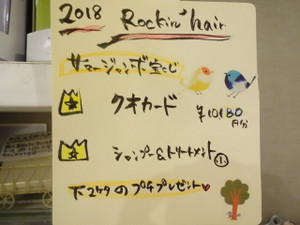 2018 Rockin' hair
サマージャンボ宝くじ
クオカード ¥10180円分
シャンプー&トリートメント 小
下2ケタのプチプレゼント♥